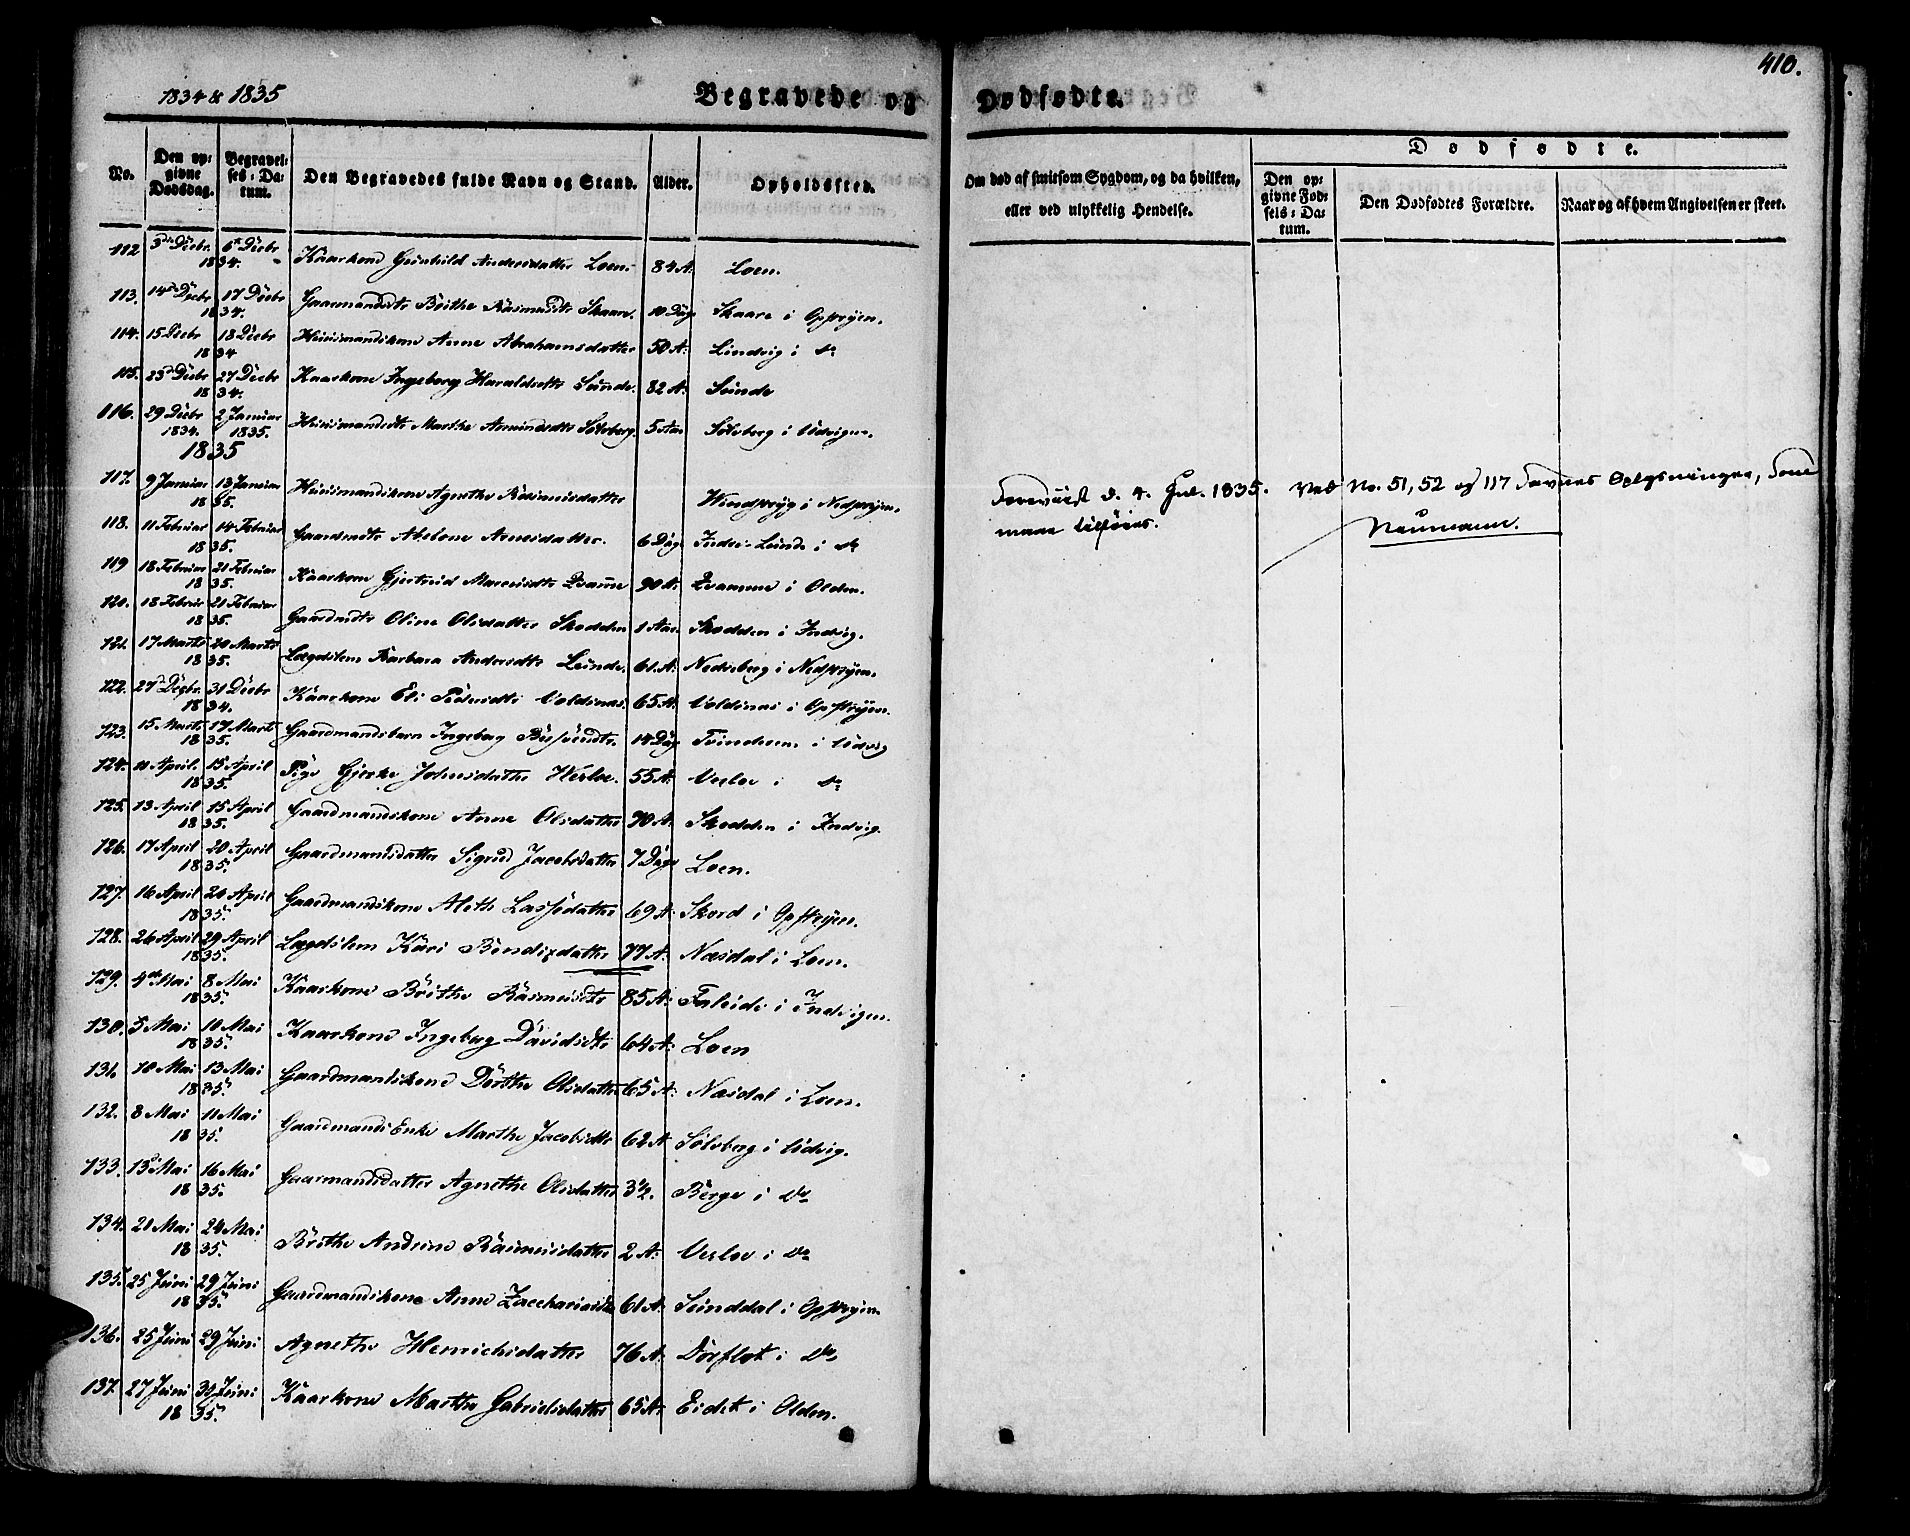 410.
1834 & 1835
Begravede og Dødfødte.
No. Den opgivne Dødsdag. Begravelses-Datum. Den Begravedes fulde Navn og Stand. Alder. Opholdssted. Om død af smitsom Sygdom, og da hvilken, eller ved ulykkelig Hendelse. Dødfødte. Den opgivne Fødsels-Datum. Den Dødfødtes Forældre. Naar og af hvem Angivelsen er skeet.
112 3die Decbr. 6te Decbr 1834. Kaarkone Gunhild Andersdatter Loen. 84 A. Loen.
113. 14de Decbr 17 Decbr 1834. Gaarmandsdtr Brithe Rasmusdtr Skaare. 10 Dage Skaare i Opstryen.
114. 15 Decbr 18 Decbr 1834 Huusmandskone Anne Abrahamsdatter 50 A. Lindvig i do
115. 23de Decbr 27 Decbr 1834. Kaarkone Ingeborg Haraldsdtr Sunde. 82 A. Sunde
116. 29 Decbr 1834. 2 Januar 1835. Huusmandsdtr Marthe Amundsdtr Sølvberg. 5 Aar Sølvberg i Udvigen.
1835
117. 9 Januar 13 Januar 1835. Huusmandskone Agnethe Rasmusdatter i Nedstryen.
118. 11 Februar 14 Februar 1835. Gaardmdtr Abelone Arnesdatter. 6 Dage Indre-Sunde i do
119 18 Februar 21 Februar 1835. Kaarkone Gjertrud Qvamme 90 A. Qvamme i Olden.
120. 18 Februar 21 Februar 1835. Gaardmdtr Oline Olsdatter Skodden 1 Aar Skodden i Indvig.
121. 17 Marts 20 Marts 1835. Lægdslem Barbara Andersdtr Sunde. 61. A. Nedreberg i Nedstryen.
122. 27de Decbr. 31 Decbr 1834. Kaarkone Eli Pedersdtr Valdenæs. 65 A. Valdenæs i Opstryen.
123. 15 Marts 17 Marts 1835. Gaardmandsbarn Ingeborg 14 Dage Tvinderem i Udvig
124. 11 April. 15 April 1835. Pige Gjerke Johnsdatter Verloe. 55 A. Verloe i do
125. 13 April 15 April 1835. Gaardmandskone Anne Olsdatter 70 A. Skodden i Indvig.
126. 17 April 20 April 1835. Gaardmandsdatter Sigrid Jacobsdatter 7 Dage Loen.
127. 16 April 20 April 1835. Gaardmandskone Alethe Lassedatter 69 A. Skord i Opstryen.
128. 26 April 29 April 1835. Lægdslem Kari Bendixdatter 77 A. Næsdal i Loen.
129. 4de Mai 8 Mai 1835. Kaarkone Brithe Rasmusdtr 85 A. Faleide i Indvigen.
130. 5 Mai 10 Mai 1835. Kaarkone Ingeborg Davidsdtr 64 A. Loen
131. 10 Mai 13 Mai 1835. Gaardmandskone Dorthe Olsdatter 65 A. Næsdal i Loen.
132. 8 Mai 11 Mai 1835. Gaardmands Enke Marthe Jacobsdtr 62 A. Sølvberg i Udvig.
133. 13de Mai 16 Mai 1835. Gaarmandsdatter Agnethe Olsdatter 3 1/2. Berge i do
134. 21 Mai 24 Mai 1835. Brithe Andrine Rasmusdatter 2 A. Verloe i do
135. 25 Juni 29 Juni 1835. Gaardmandskone Anne Zacchariasdtr 61 A. Sunddal i Opstryen
136. 25 Juni 29 Juni Agnethe Henrichsdatter 76 A. Dørflot i do
137. 27 Juni 30 Juni 1835. Kaarkone Marthe Gabrielsdatter 65 A. Eidet i Olden.
Foreviist d. 4. Jul. 1835. Ved No. 51, 52 og 117 savnes Oplysninger, som
maae tilføies.
Neumann.